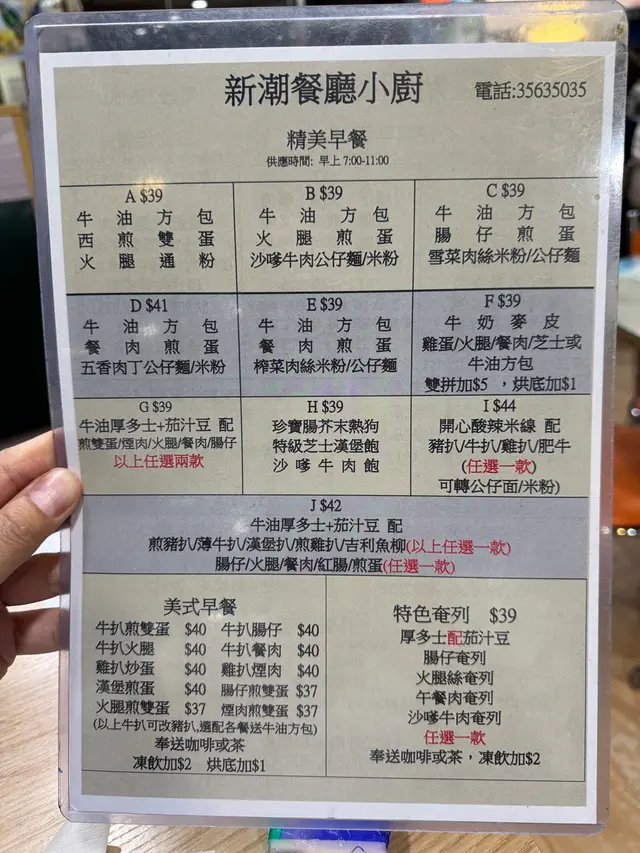 新潮餐廳小廚
電話:35635035
精美早餐
供應時間: 早上 7:00-11:00
A $39
牛油方包
西煎雙蛋
火腿通粉
B $39
牛油方包
火腿煎蛋
沙嗲牛肉公仔麵/米粉
C $39
牛油方包
腸仔煎蛋
雪菜肉絲米粉/公仔麵
D $41
牛油方包
餐肉煎蛋
五香肉丁公仔麵/米粉
E $39
牛油方包
餐肉煎蛋
榨菜肉絲米粉/公仔麵
F $39
牛奶麥皮
雞蛋/火腿/餐肉/芝士或
牛油方包
雙拼加$5 ，烘底加$1
G $39
牛油厚多士+茄汁豆 配
煎雙蛋/煙肉/火腿/餐肉/腸仔
以上任選兩款
H $39
珍寶腸芥末熱狗
特級芝士漢堡飽
沙嗲牛肉飽
I $44
開心酸辣米線 配
豬扒/牛扒/雞扒/肥牛
(任選一款)
可轉公仔面/米粉)
J $42
牛油厚多士+茄汁豆 配
煎豬扒/薄牛扒/漢堡扒/煎雞扒/吉利魚柳(以上任選一款)
腸仔/火腿/餐肉/紅腸/煎蛋(任選一款)
美式早餐
牛扒煎雙蛋 $40 牛扒腸仔 $40
牛扒火腿 $40 牛扒餐肉 $40
雞扒炒蛋 $40 雞扒煙肉 $40
漢堡煎蛋 $40 腸仔煎雙蛋 $37
火腿煎雙蛋 $37 煙肉煎雙蛋 $37
(以上牛扒可改豬扒,選配各餐送牛油方包)
奉送咖啡或茶
凍飲加$2 烘底加$1
特色奄列 $39
厚多士配茄汁豆
腸仔奄列
火腿絲奄列
午餐肉奄列
沙嗲牛肉奄列
任選一款
奉送咖啡或茶，凍飲加$2